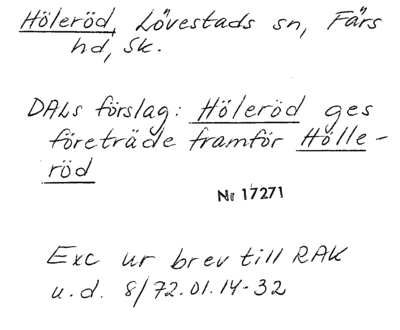 Höleröd, Lövestads sn, Färs
hd, Sk.
DALs förslag: Höleröd ges
företräde framför Hölle-
röd
Nr 17271
Exc ur brev till RAK
u.d. 8/72.01.14-32